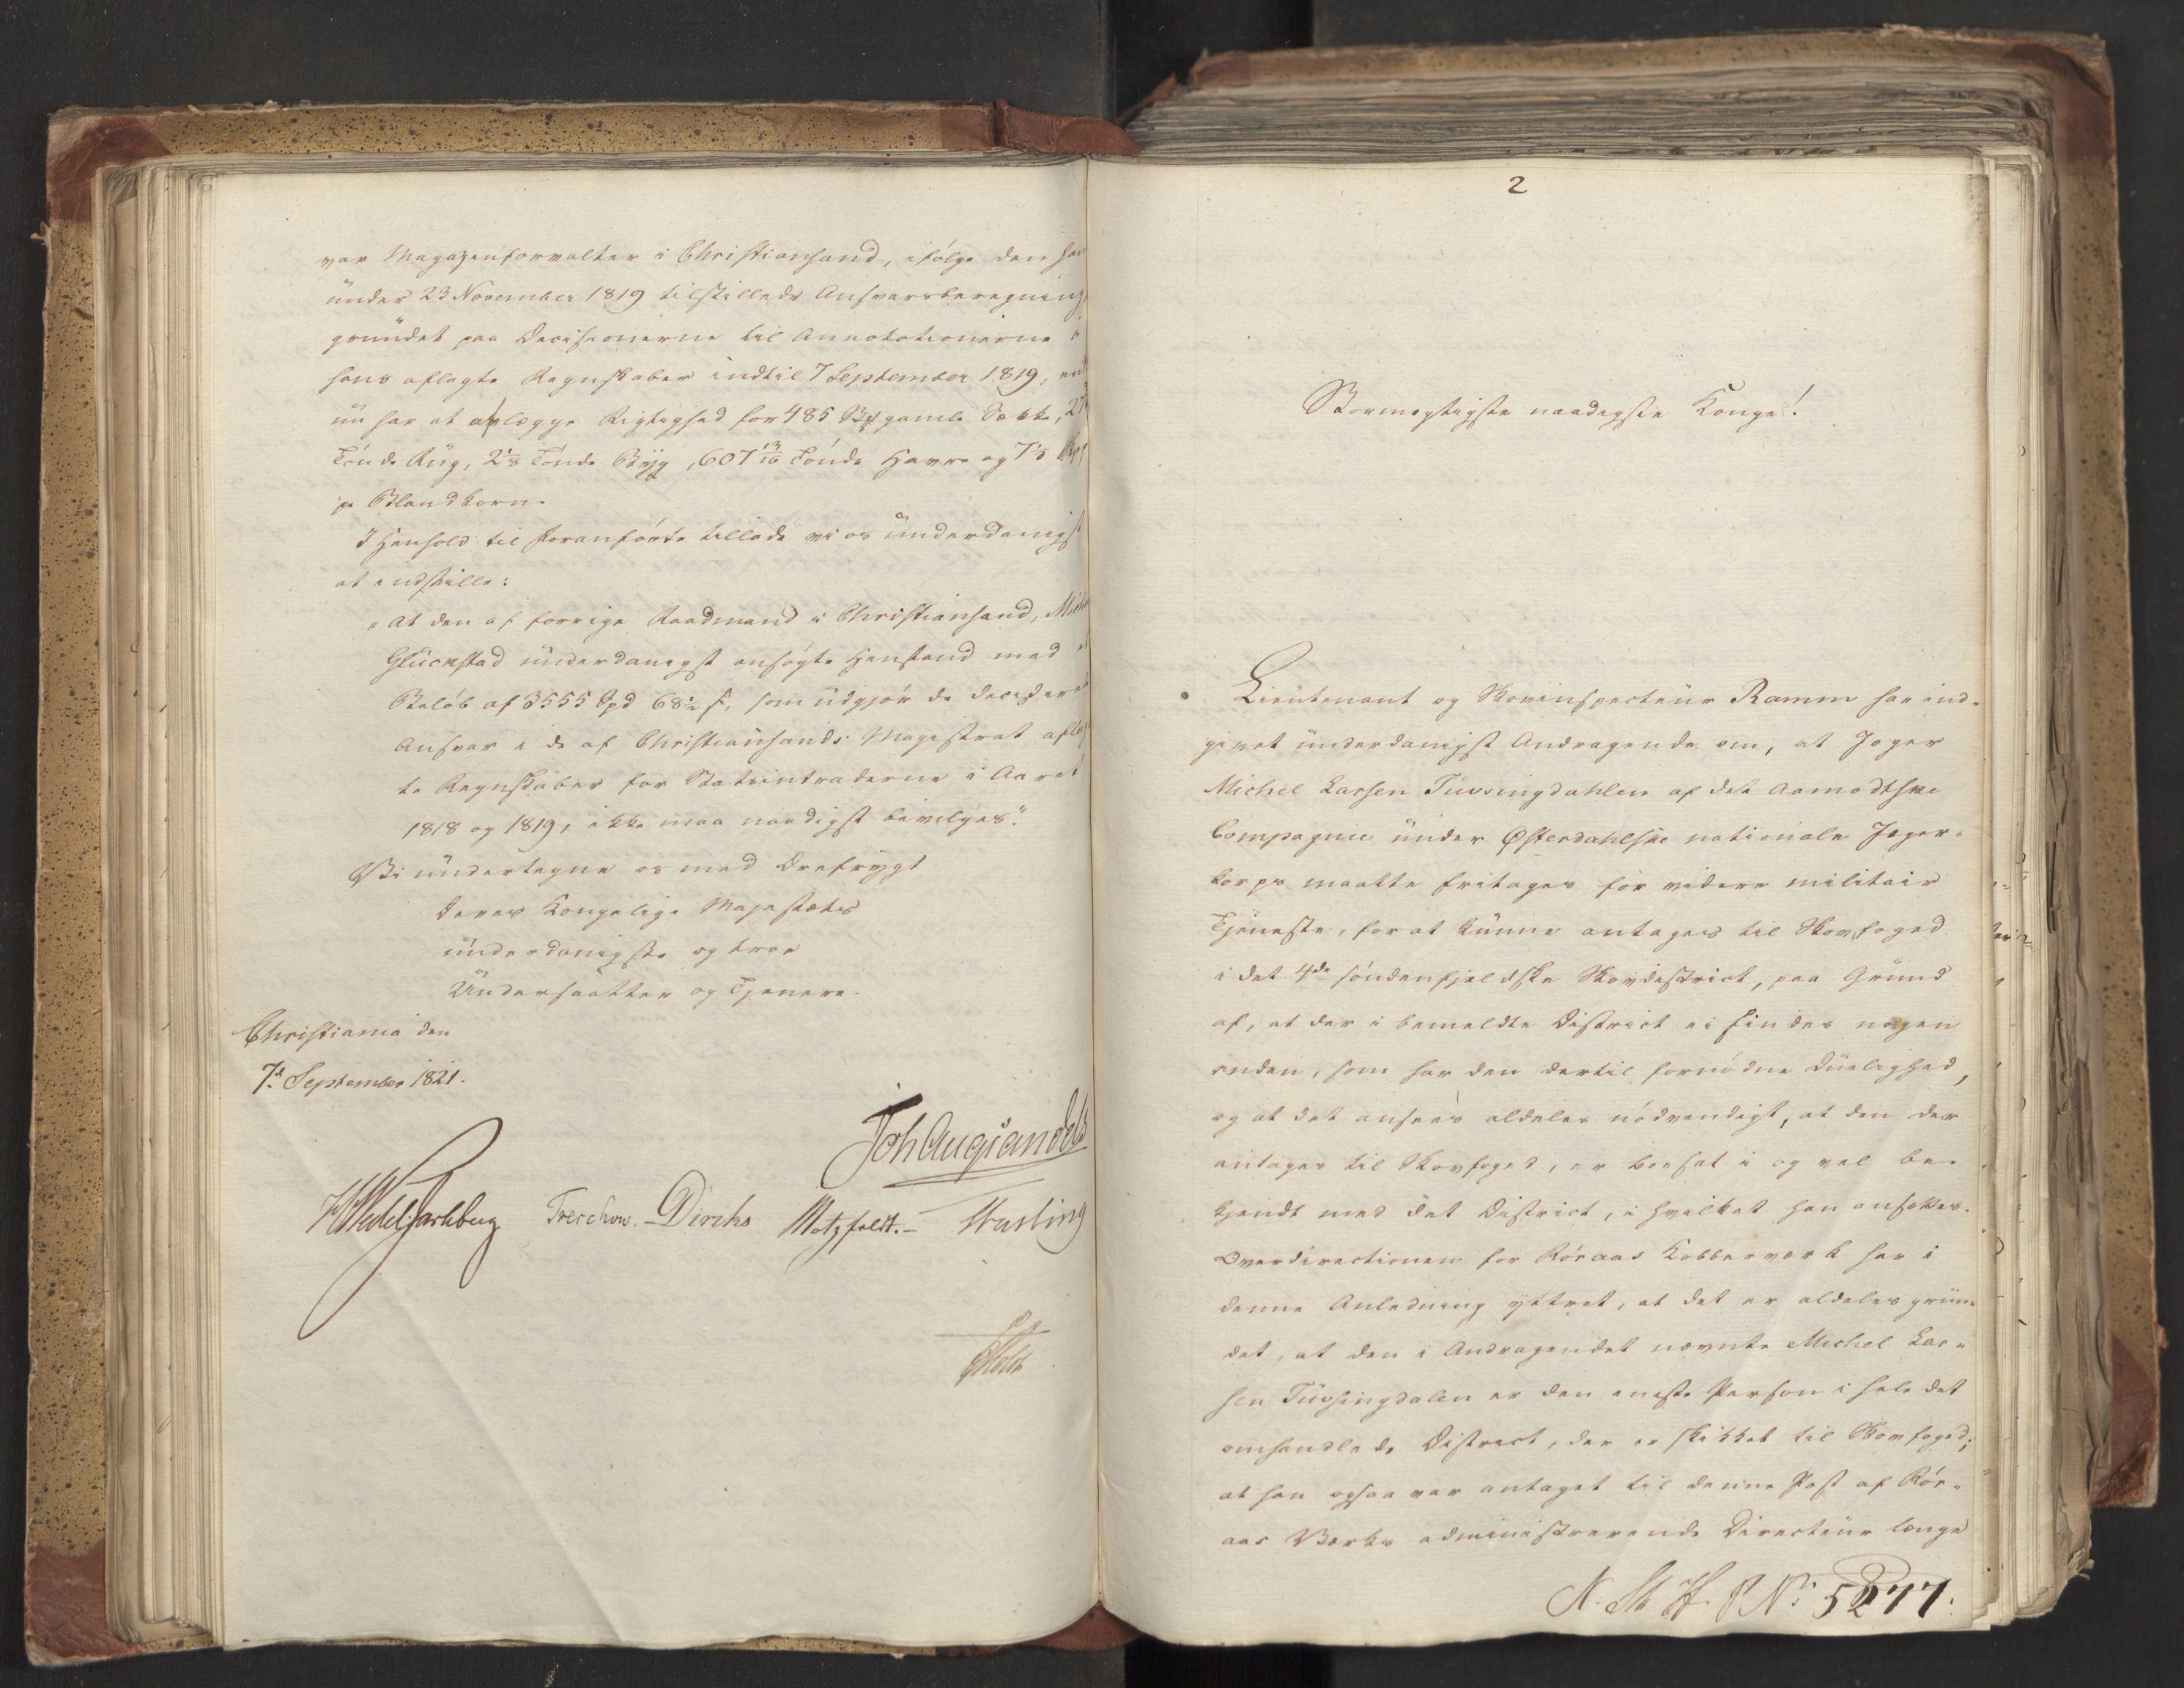 var Magazinforvalter i Christiansand, ifølge den ham
under 23 November 1819 tilstillede Ansvarsberegning
grundet paa Decisionerne til Annotationerne i
hans aflagte Regnskaber indtil 7 September 1819, end
nu har at aflægge Rigtighed for 485 gamle Sække,
Tønde Rug, 2 1/8 Tønde Byg, 607 13/16 Tønde Havre og
Blandkorn.
I Henhold til Foranførte tillade vi os underdanigst
at indstille:
"At den af forrige Raadmand i Christiansand,
Glückstad underdanigst ansøgte Henstand med
Beløb af 3555 Spd 68½ s, som udgjør de deciderede
Ansvar i de af Christiansands Magistrat aflag
te Regnskaber for Statsintraderne i Aaret
1818 og 1819, ikke maa naadigst bevilges."
Vi undertegne os med Ærefrygt
Deres Kongelige Majestæts
underdanigste og troe
Undersaatter og Tjenere.
Christiania den
7de September 1821.
Joh Aug Sandels
H Wedel Jarlsberg Treschow. Diriks Motzfeldt. – Fasting
Holst
2
Stormægtigste naadigste Konge!
Lieutenant og Skovinspecteur Ramm har ind-
givet underdanigst Andragende om, at Jæger
Michel Larsen Tufsingdahlen af det Aamodtske
Compagnie under Østerdahlske nationale Jæger-
korps maatte fritages for videre militair
Tjeneste, for at kunne antages til Skovfoged
i det 4de søndenfjeldske Skovdistrict, paa Grund
af, at der i bemeldte District ei findes nogen
anden, som har den dertil fornødne Duelighed,
og at det ansees aldeles nødvendigt, at den der
antages til Skovfoged, er boesat i og vel be-
kjendt med det District, i hvilket han ansættes.
Overdirectionen for Røraas Kobberværk har i
denne Anledning yttret, at det er aldeles grun-
det, at den i Andragendet nævnte Michel Lar-
sen Tufsingdalen er den eneste Person i hele det
omhandlede District, der er skikket til Skovfoged;
at han ogsaa var antaget til denne Post af Rør-
aas Værks administrerende Directeur længe
N. St. H. J No 5277.